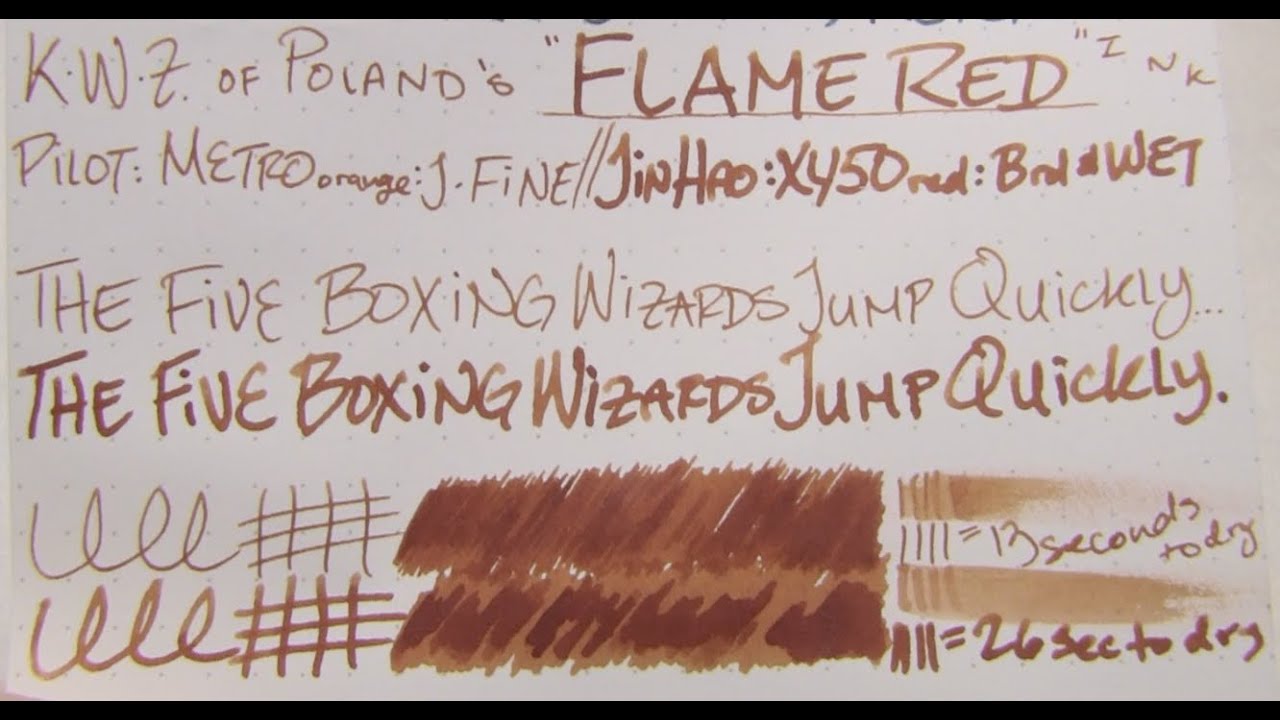 K.W.Z. OF POLAND'S "FLAME RED" INK
PILOT: METRO orange: J. FiNE//JiNHAO: X450 red: Brd & WET
THE FiVE BOXiNG WiZARDS JUMP QuickLy...
THE FiVE BOXiNG WiZARDS JUMP QuickLy.
= 13 seconds
to dry
= 26 sec to dry